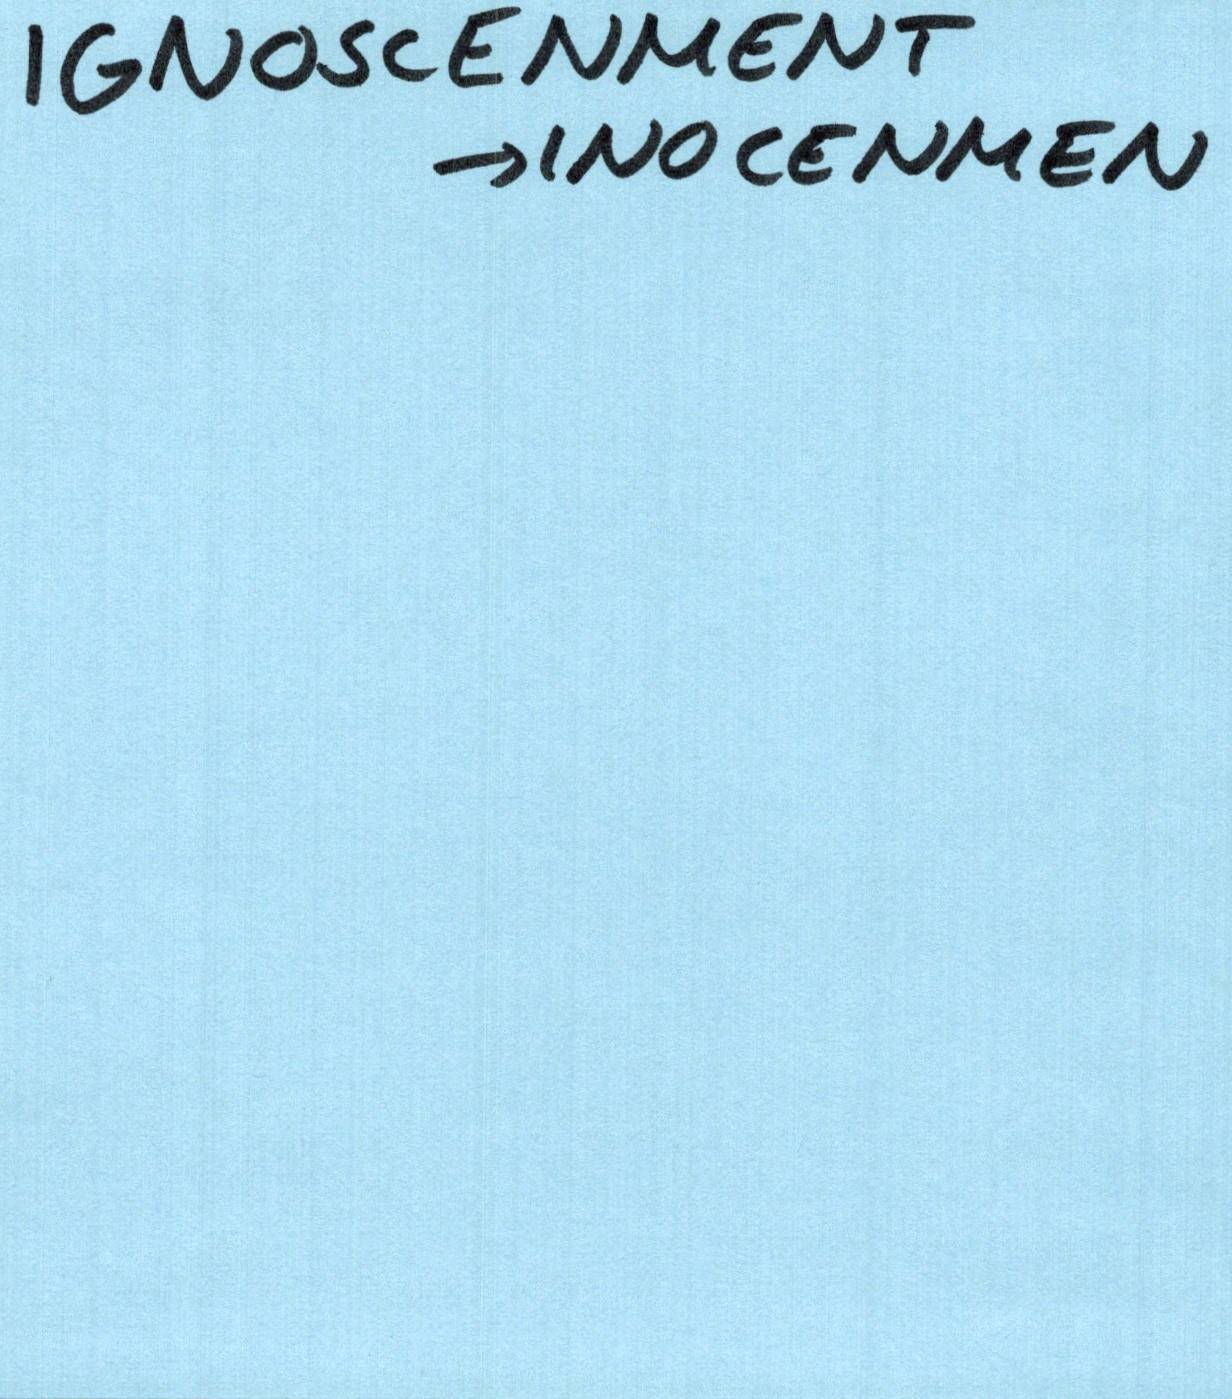 IGNOSCENMENT
→INOCENMEN